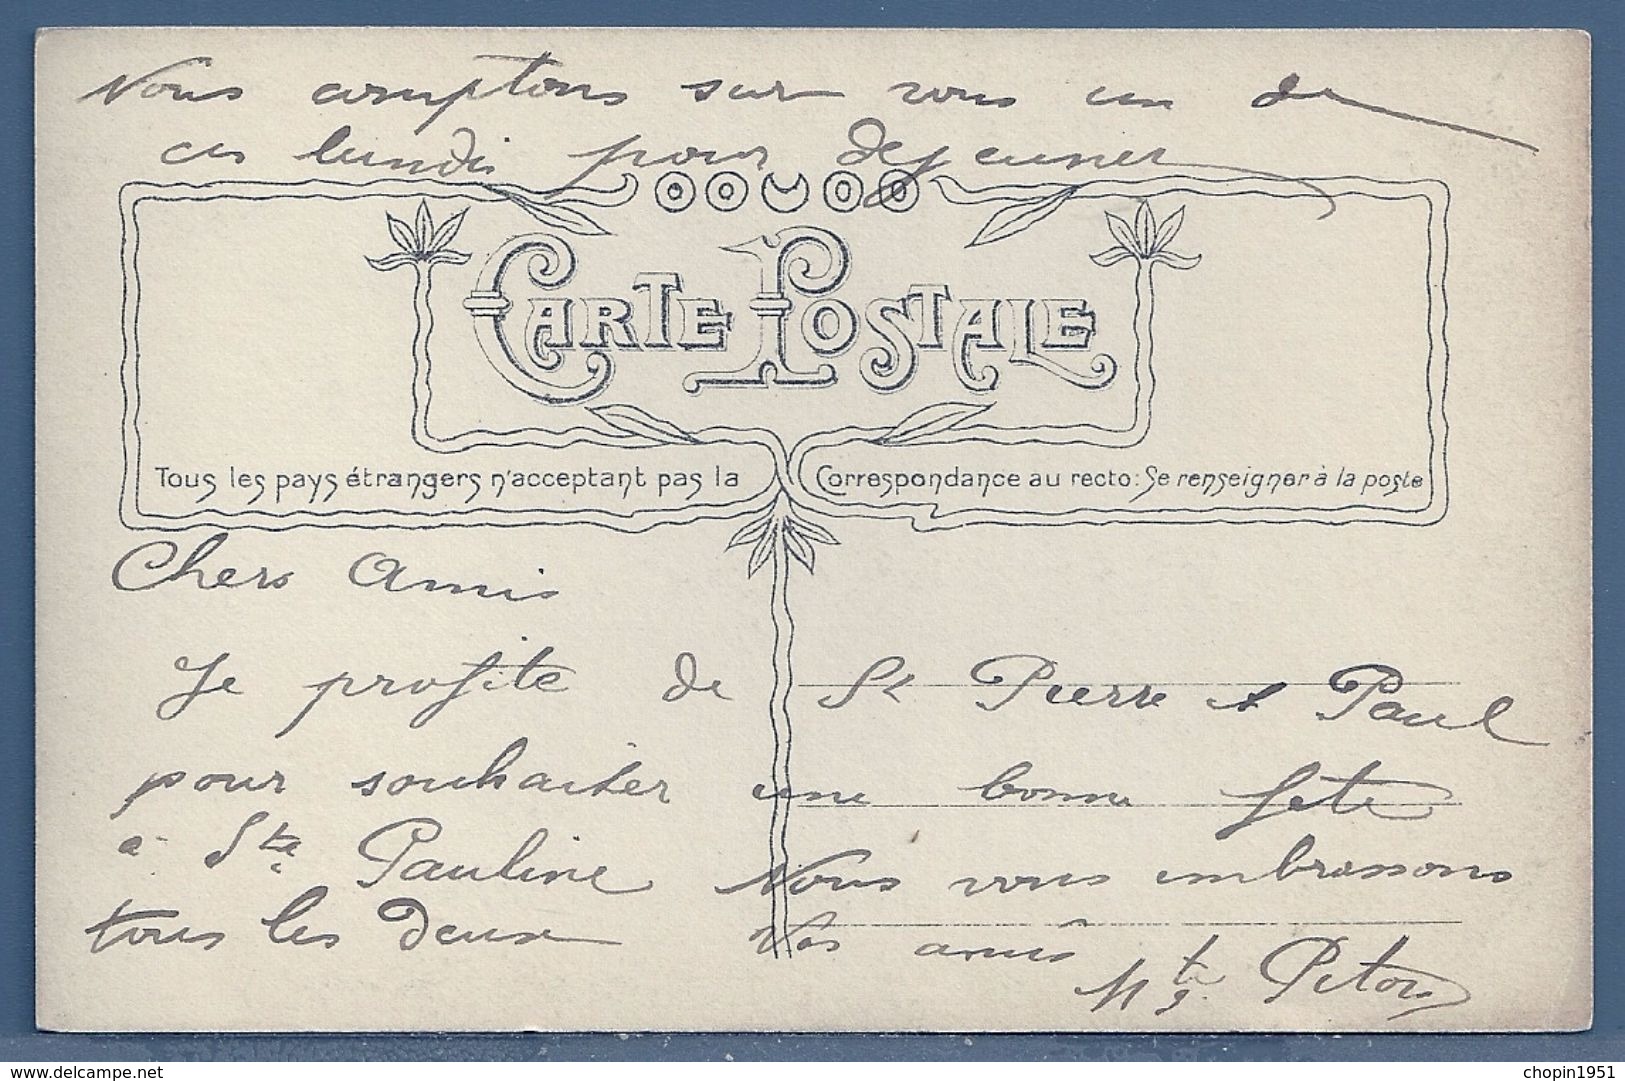 Nous comptons sur vous un de
ces lundis pour dejeuner
CARTE POSTALE
Tous les pays étrangers n'acceptant pas la Correspondance au recto: Se renseigner à la poste
Chers Amis
Je profite de St Pierre et Paul
pour souhaiter une bonne fete
à Ste Pauline Nous vous embrassons
tous les deux Vos amis
Pitois
delcampe.net
chopin1951